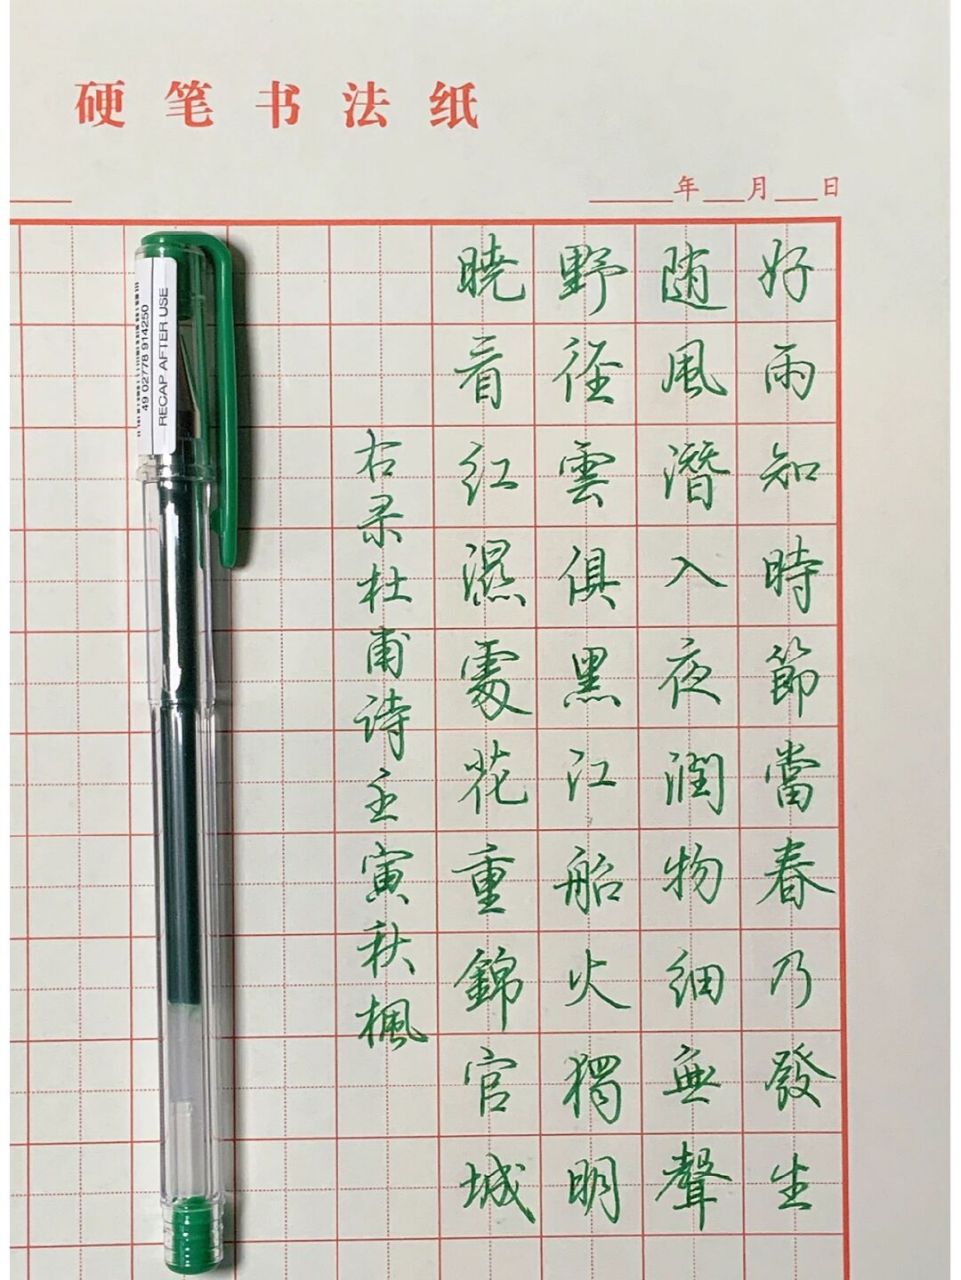 硬笔书法纸
年 月 日
好雨知時節當春乃發生
随風潛入夜潤物细無聲
野徑雲俱黑江船火獨明
曉看红濕處花重錦官城
右录杜甫诗壬寅秋楓
49 02778 914250
RECAP AFTER USE